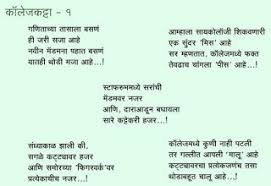 कॉलेजकट्टा - १
गणिताच्या तासाला बसणं
ही जरी सजा आहे
नवीन मॅडमना पहात बसणं
यातही थोडी मजा आहे...!
आम्हाला सायकोलॉजी शिकवणारी
एक सुंदर "मिस" आहे
सर म्हणतात, कॉलेजमध्ये फक्त
तेवढाच चांगला "पीस" आहे...!
स्टाफरुममध्ये सरांची
मॅडमवर नजर
आणि, दाराआडून बघायला
सारे कट्टेकरी हजर...!
संध्याकाळ झाली की,
सगळे कट्ट्यावर हजर
आणि समोरच्या "फिगरवर्क"वर
प्रत्येकाचीच नजर...!
कॉलेजमध्ये कुणी नाही पटली
तर गल्लीत आपली "मालू" आहे
कट्ट्यावरचा प्रत्येकजणंच तसा
थोडाबहूत चालू आहे...!